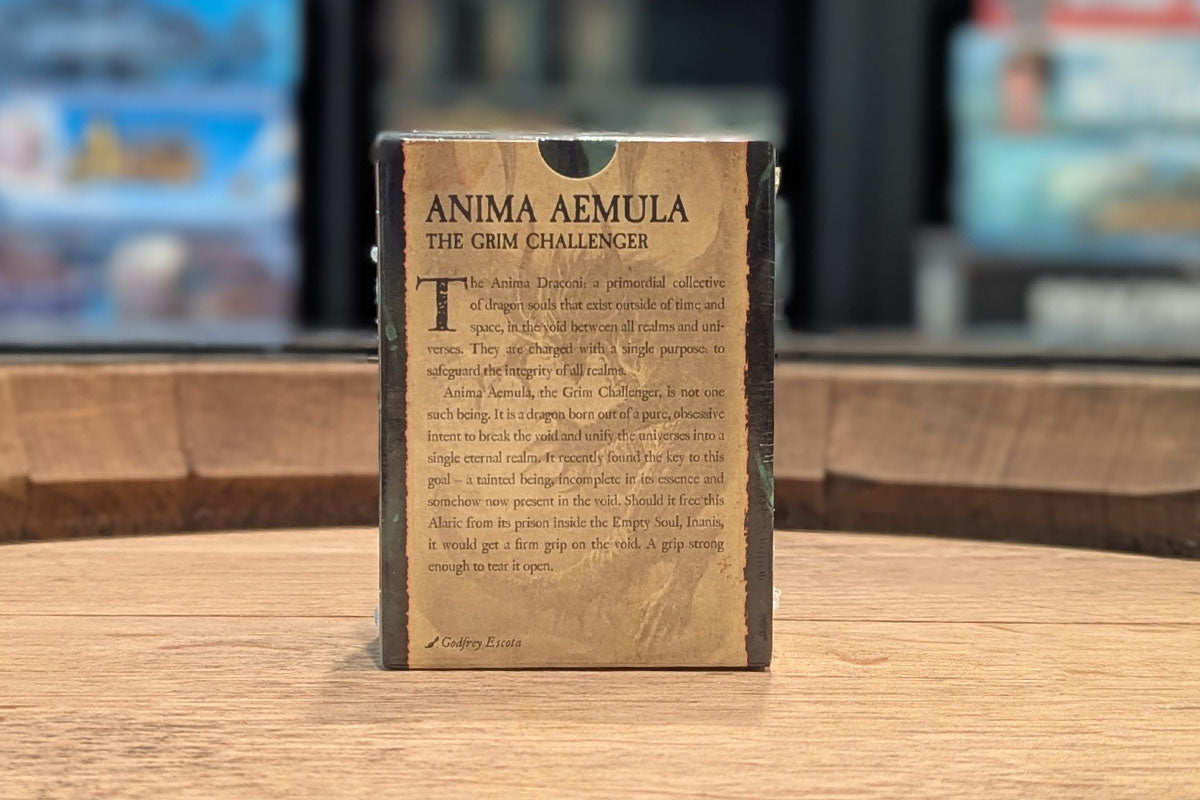 ANIMA AEMULA
THE GRIM CHALLENGER
The Anima Draconi: a primordial collective
of dragon souls that exist outside of time and
space, in the void between all realms and uni-
verses. They are charged with a single purpose: to
safeguard the integrity of all realms.
Anima Aemula, the Grim Challenger, is not one
such being. It is a dragon born out of a pure, obsessive
intent to break the void and unify the universes into a
single eternal realm. It recently found the key to this
goal – a tainted being, incomplete in its essence and
somehow now present in the void. Should it free this
Alaric from its prison inside the Empty Soul, Inanis,
it would get a firm grip on the void. A grip strong
enough to tear it open.
Godfrey Escota